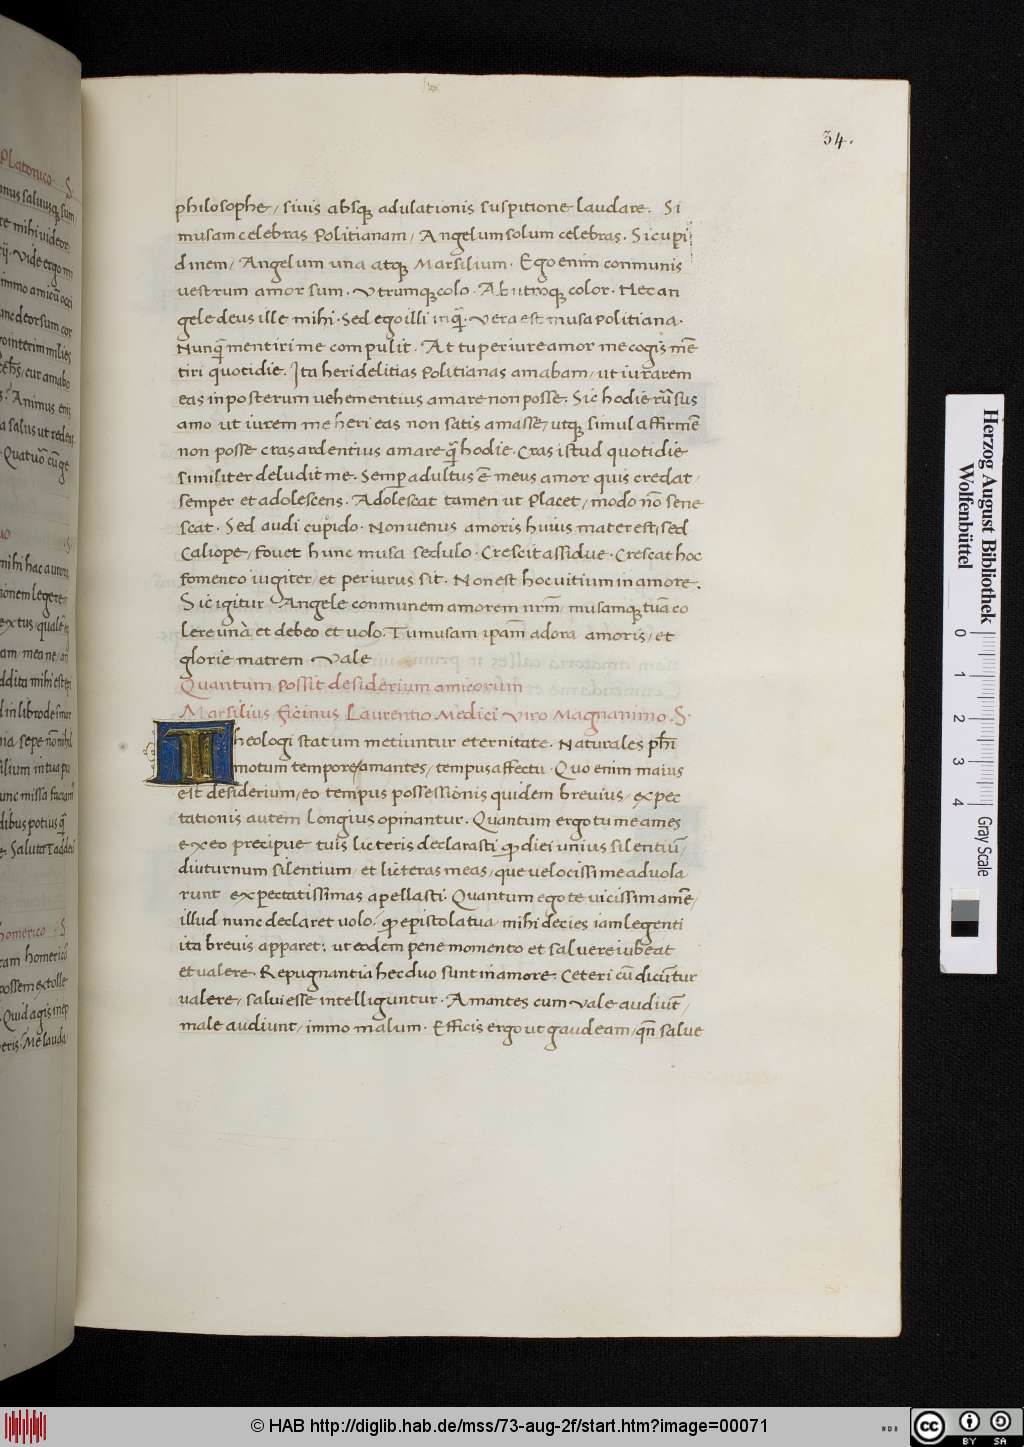 34.
philosophe / siuis absq̨ adulationis suspitione laudare. Si
musam celebras Politianam / Angelum solum celebras. Si cupi
dinem / Angelum una atq̨ Marsilium. Ego enim conmunis
uestrum amor sum. Vtrumq̨ colo. Ab utroq̨ color. Nec an
gele deus ille mihi. Sed ego illi inq̄. Vera est musa Politiana.
Nunq̄ mentiri me compulit. At tu periure amor me cogis mē
tiri quotidie. Ita heri delitias Politianas amabam / ut iurarem
eas inposterum uehementius amare non posse. Sic hodie rūsus
amo ut iurem me heri eas non satis amasse / utq̨ simul affirmē
non posse cras ardentius amare q̄ hodie. Cras istud quotidie
similiter deludit me. Semp adultus ē meus amor quis credat /
semper et adolescens. Adolescat tamen ut Placet / modo nō sene
scat. Sed audi cupido. Non uenus amoris huius mater est / sed
Caliope / fouet hunc musa sedulo. Crescit assidue. Crescat hoc
fomento iugiter / et periurus sit. Non est hoc uitium in amore.
Sic igitur Angele conmunem amorem nrm̄ / musamq̨ tuā co
lere unà et debeo et uolo. Tu musam ipam̄ adora amoris / et
glorie matrem. Vale
Quantum Possit desiderium amicorum
Marsilius ficinus Laurentio Medici Viro Magnanimo. S.
Theologi statum metiuntur eternitate. Naturales ph̄i
motum tempore / amantes / tempus affectu. Quo enim maius
est desiderium / eo tempus possessionis quidem breuius / expec
tationis autem longius opinantur. Quantum ergo tu me ames
ex eo precipue tuis licteris declarasti qp diei unius silentiū /
diuturnum silentium / et licteras meas / que uelocissime aduola
runt expectatissimas apellasti. Quantum ego te uicissim amē /
illud nunc declaret uolo: qp epistola tua mihi decies iam legenti
ita breuis apparet: ut eodem pene momento et saluere iubeat
et ualere. Repugnantia hec duo sunt in amore. Ceteri cū dicūtur
ualere / salui esse intelliguntur. Amantes cum Vale audiūt /
male audiunt / immo malum. Efficis ergo ut gaudeam / qn̄ salue
Herzog August Bibliothek
Wolfenbüttel
0 1 2 3 4
Gray Scale
© HAB http://diglib.hab.de/mss/73-aug-2f/start.htm?image=00071
WDB
cc BY SA